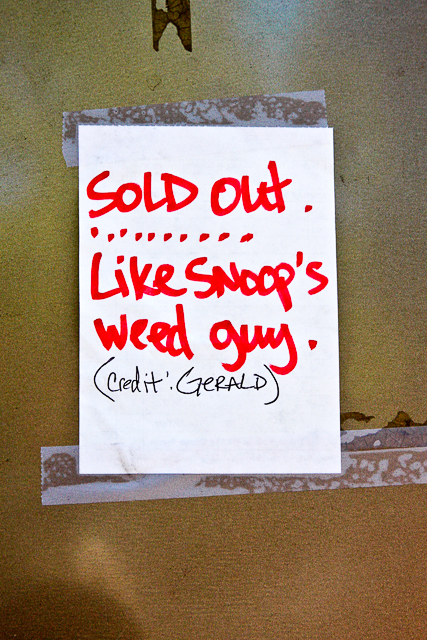 SOLD OUT.
.........
Like SNOOP's
weed guy.
(credit: GERALD)